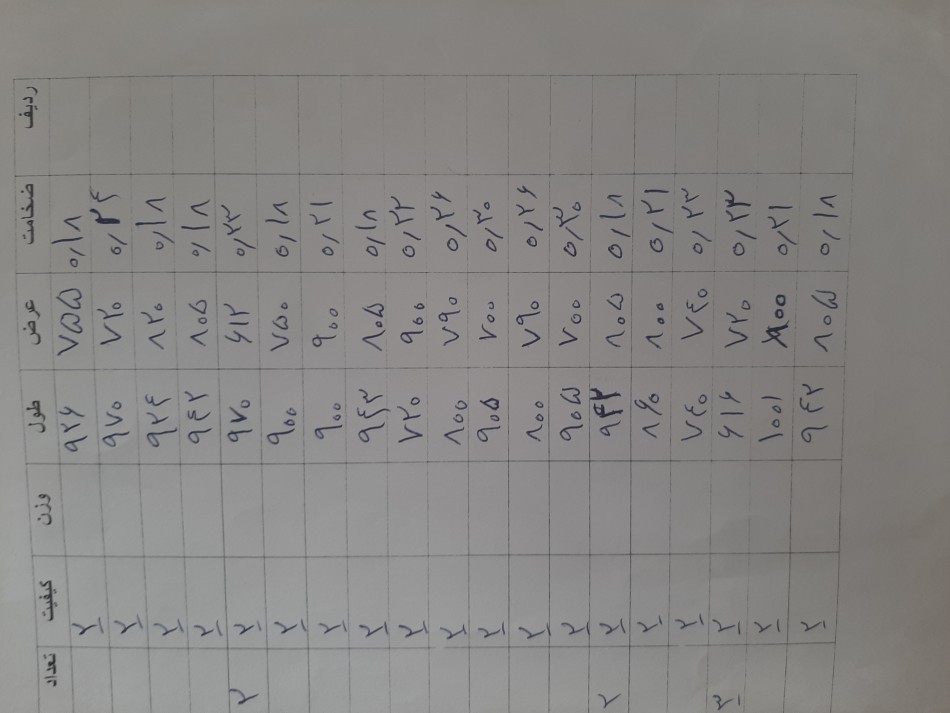 ردیف ضخامت عرض طول وزن کیفیت تعداد
۰/۱۸ ۷۵۵ ۹۲۶ ۲
۰/۲۴ ۷۲۰ ۹۷۰ ۲
۰/۱۸ ۸۲۰ ۹۲۴ ۲
۰/۱۸ ۸۰۵ ۹۴۲ ۲
۰/۲۳ ۶۱۲ ۹۷۰ ۲ ۲
۰/۱۸ ۷۵۰ ۹۰۰ ۲
۰/۲۱ ۹۰۰ ۹۰۰ ۲
۰/۱۸ ۸۰۵ ۹۴۲ ۲
۰/۲۲ ۹۰۰ ۷۲۰ ۲
۰/۲۶ ۷۹۰ ۸۰۰ ۲
۰/۳۰ ۷۰۰ ۹۰۵ ۲
۰/۲۶ ۷۹۰ ۸۰۰ ۲
۰/۳۰ ۷۰۰ ۹۰۵ ۲
۰/۱۸ ۸۰۵ ۹۴۲ ۲ ۲
۰/۲۱ ۸۰۰ ۲
۰/۲۳ ۷۴۰ ۷۴۰ ۲
۰/۲۳ ۷۲۰ ۶۱۶ ۲ ۳
۰/۲۱ ۱۰۰۱ ۲
۰/۱۸ ۸۰۵ ۹۴۲ ۲